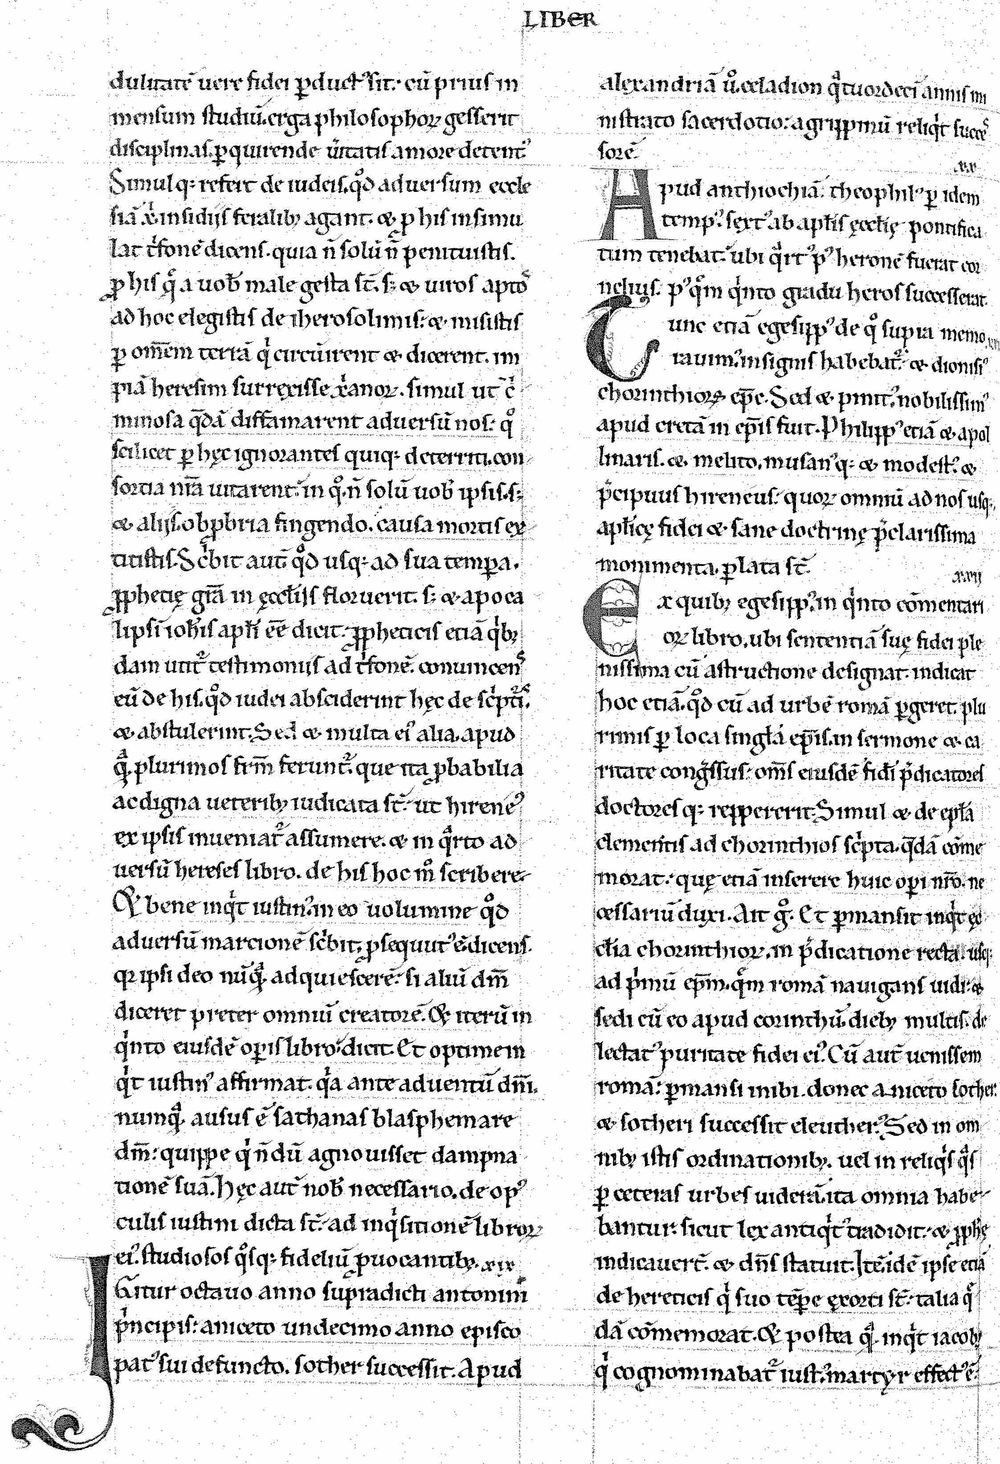 LIBER
dulitatē vere fidei ꝑduct᾽ sit. cū prius in
mensum studiū. erga philosophoꝝ gesserit
disciplinas. ꝑquirende ũitatis amore detent᾽
Simulq; refert de iudeis. qͦd adversum eccle
siā xp̄i insidiis feralib; agant. & ꝓ his insimu
lat t͛fonē dicens. quia n̄ solū n̄ penituistis.
ꝓ his qͦ a vob̄ male gesta st̄. s; & viros aptͦs
ad hoc elegistis de iherosolimis. & misistis
ꝑ om̄em terrā qͥ circūirent & dicerent. im
piā heresim surrexisse xp̄ianoꝝ. simul ut c͛
minosa qͣdā diffamarent adversū nos. qͦ
scilicet ꝑ hęc ignorantes quiq; deterriti. con
sortia nr̄a vitarent. in qͦ. n̄ solū vob̄ ipsis. s;
& aliis. obꝓbria fingendo. causa mortis ex
titistis. Sc͛bit aut̄ qͦd usq; ad sua tempa.
ꝓphetię grā in ęccłiis floruerit. s; & apoca
lipsi ioh̄is apłi eē dicit. ꝓpheticis etiā qͥb;
dam utit᾽ testimoniis ad t͛fonē. convincens
eū de his. qͦd iudei absciderint hęc de sc͛pti᾽.
& abstulerint. Sed & multa ei᾽ alia. apud
qͣꝫ plurimos frm̄ ferunt᾽. que ita ꝓbabilia
ac digna veterib; iudicata st̄. ut hirene᾽
ex ipsis inveniat᾽ assumere. & in qͣrto ad
versū hereses libro. de his hoc mͦ scribere.
Et bene inqͥt iustin᾽. in eo volumine qͦd
adversū marcionē sc͛bit. ꝓsequut᾽ ē dicens.
qꝛ ipsi deo nūqͣꝫ adquiescerē. si aliū dm̄
diceret preter omniū creatorē. Et iterū in
qͥnto eiusdē opis libro. dicit. Et optime in
qͥt iustin᾽ affirmat. qͣ ante adventū dn̄i.
numqͣꝫ ausus ē sathanas blasphemare
dm̄. quippe qͥ n̄dū agnovisset dampna
tionē suā. Hęc aut̄ nob̄ necessario. de op᾽
culis iustini dicta st̄. ad inqͥsitionē libroꝝ
ei᾽. studiosos qͦsq; fideliū ꝓvocantib;. xix
IGitur octavo anno supradicti antonini
pͥncipis. aniceto undecimo anno episco
pat᾽ sui defuncto. sother successit. Apud
alexandriā ũͦ. celadion qͣtuordecī annis mi
nistrato sacerdotio. agrippinū reliqͥt succes
sorē.
xx
Apud anthiochiā. theophil᾽ ꝑ idem
temp᾽. sext᾽ ab apłis ęcclię pontifica
tum tenebat. ubi qͣrt᾽ p᾽ heronē fuerat cor
nelius. p᾽ qͣm qͥnto gradu heros successerat.
Tunc etiā egesipp᾽ de qͦ supra memo
xxi
ravim᾽. insignis habebat᾽. & dionisi᾽
chorinthioꝝ ep̄c. Sed & pinit᾽. nobilissim᾽
apud cretā in ep̄is fuit. Philipp᾽ etiā & apol
linaris. &. melito. musan᾽q; & modest᾽. &
p͛cipuus hireneus. quoꝝ omniū ad nos usq;.
aplicę fidei & sane doctrinę p͛clarissima
monimenta. ꝑlata st̄.
xxii
Ex quib; egesipp᾽. in qͥnto cōmentari
oꝝ libro. ubi sententiā suę fidei ple
nissima cū astructione designat. indicat
hoc etiā. qͦd cū ad urbē romā ꝑgeret. plu
rimis ꝑ loca singłā ep̄is. in sermone & ca
ritate cong͛ssus. om̄s eiusdē fidi p͛dicatores
doctoresq; reppererit. Simul & de epłā
clementis ad chorinthios sc͛pta. qͣdā cōme
morat. quę etiā inserere huic opi nr̄o. ne
cessariū duxi. Ait gͦ. Et ꝑmansit inqͥt ęc
clia chorinthioꝝ. in p͛dicatione recta. usq;
ad pͥmū ep̄m. qͣm romā navigans vidi. &
sedi cū eo apud corinthū. dieb; multis. de
lectat᾽ puritate fidei ei᾽. Cū aut̄ venissem
romā. ꝑmansi inibi. donec aniceto sother.
& sotheri successit eleuther᾽. Sed in om
nib; istis ordinationib;. vel in reliqͥs qͣs
ꝑ ceteras urbes viderā. ita omnia habe
bantur. sicut lex antiqͥt᾽ tradidit. & ꝓphę
indicaver̄. & dn̄s statuit. Itē idē ipse etiā
de hereticis qͥ suo tēpe ęxorti st̄. talia qͣ
dā cōmemorat. Et postea qͣꝫ inqͥt iacob᾽
qͥ cognominabat᾽ iust᾽. martyr effect᾽ ē.